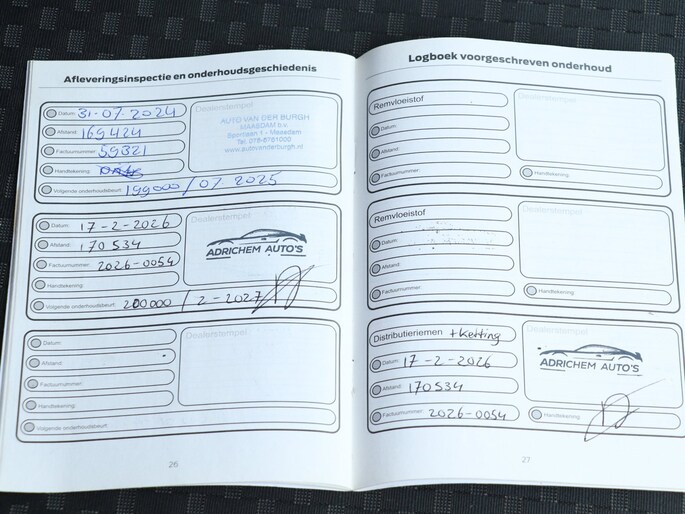 Afleveringsinspectie en onderhoudsgeschiedenis
Datum: 31-07-2024
Afstand: 169424
Factuurnummer: 59321
Handtekening:
Volgende onderhoudsbeurt: 199000 / 07 2025
Dealerstempel
AUTO VAN DER BURGH
MAASDAM b.v.
Sportlaan 1 - Maasdam
Tel. 078-6761000
www.autovanderburgh.nl
Datum: 17-2-2026
Afstand: 170534
Factuurnummer: 2026-0054
Handtekening:
Volgende onderhoudsbeurt: 200000 / 2-2027
Dealerstempel
ADRICHEM AUTO'S
Datum:
Afstand:
Factuurnummer:
Handtekening:
Volgende onderhoudsbeurt:
Dealerstempel
26
Logboek voorgeschreven onderhoud
Remvloeistof
Datum:
Afstand:
Factuurnummer:
Dealerstempel
Handtekening:
Remvloeistof
Datum:
Afstand:
Factuurnummer:
Dealerstempel
Handtekening:
Distributieriemen + Ketting
Datum: 17-2-2026
Afstand: 170534
Factuurnummer: 2026-0054
Dealerstempel
ADRICHEM AUTO'S
Handtekening:
27